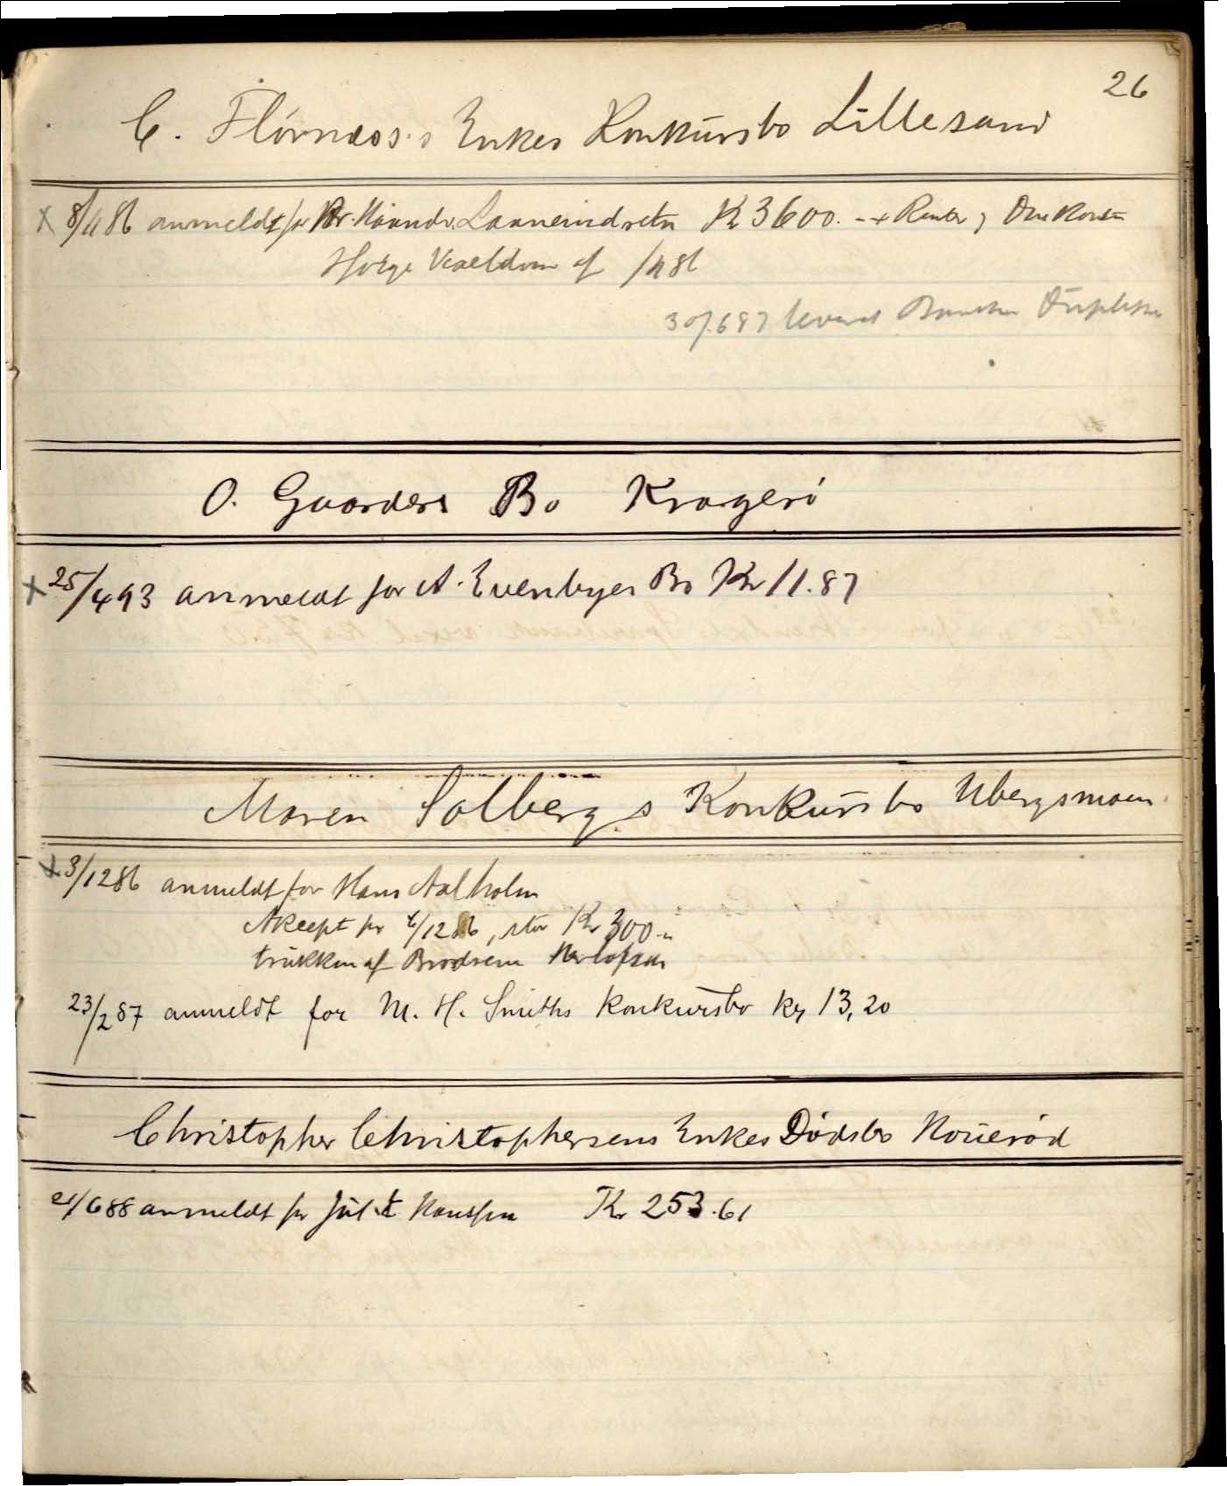 26
C. Flörnæss's Enkes Konkursbo Lillesand
x 8/4 86 anmeldt for Laaneindretn Kr 3600. -+ Renter, Omkostn
ifølge Vexeldom af /4 86
30/6 87 leveret Banken
O. Gaarders Bo Kragerö
x 25/4 93 anmeldt for A. Evenbyes Bo Kr 11.87
Maren Solberg's Konkursbo Ubergsmoen
x 3/12 86 anmeldt for Hans Aalholm
Akcept pr 6/12 86, stor Kr 300.-
trükken af Brødrene Herlofsen
23/2 87 anmeldt for M. H. Smiths Konkursbo Kr 13,20
Christopher Christophersens Enkes Dödsbo
21/6 88 anmeldt for Hansen Kr 253.61